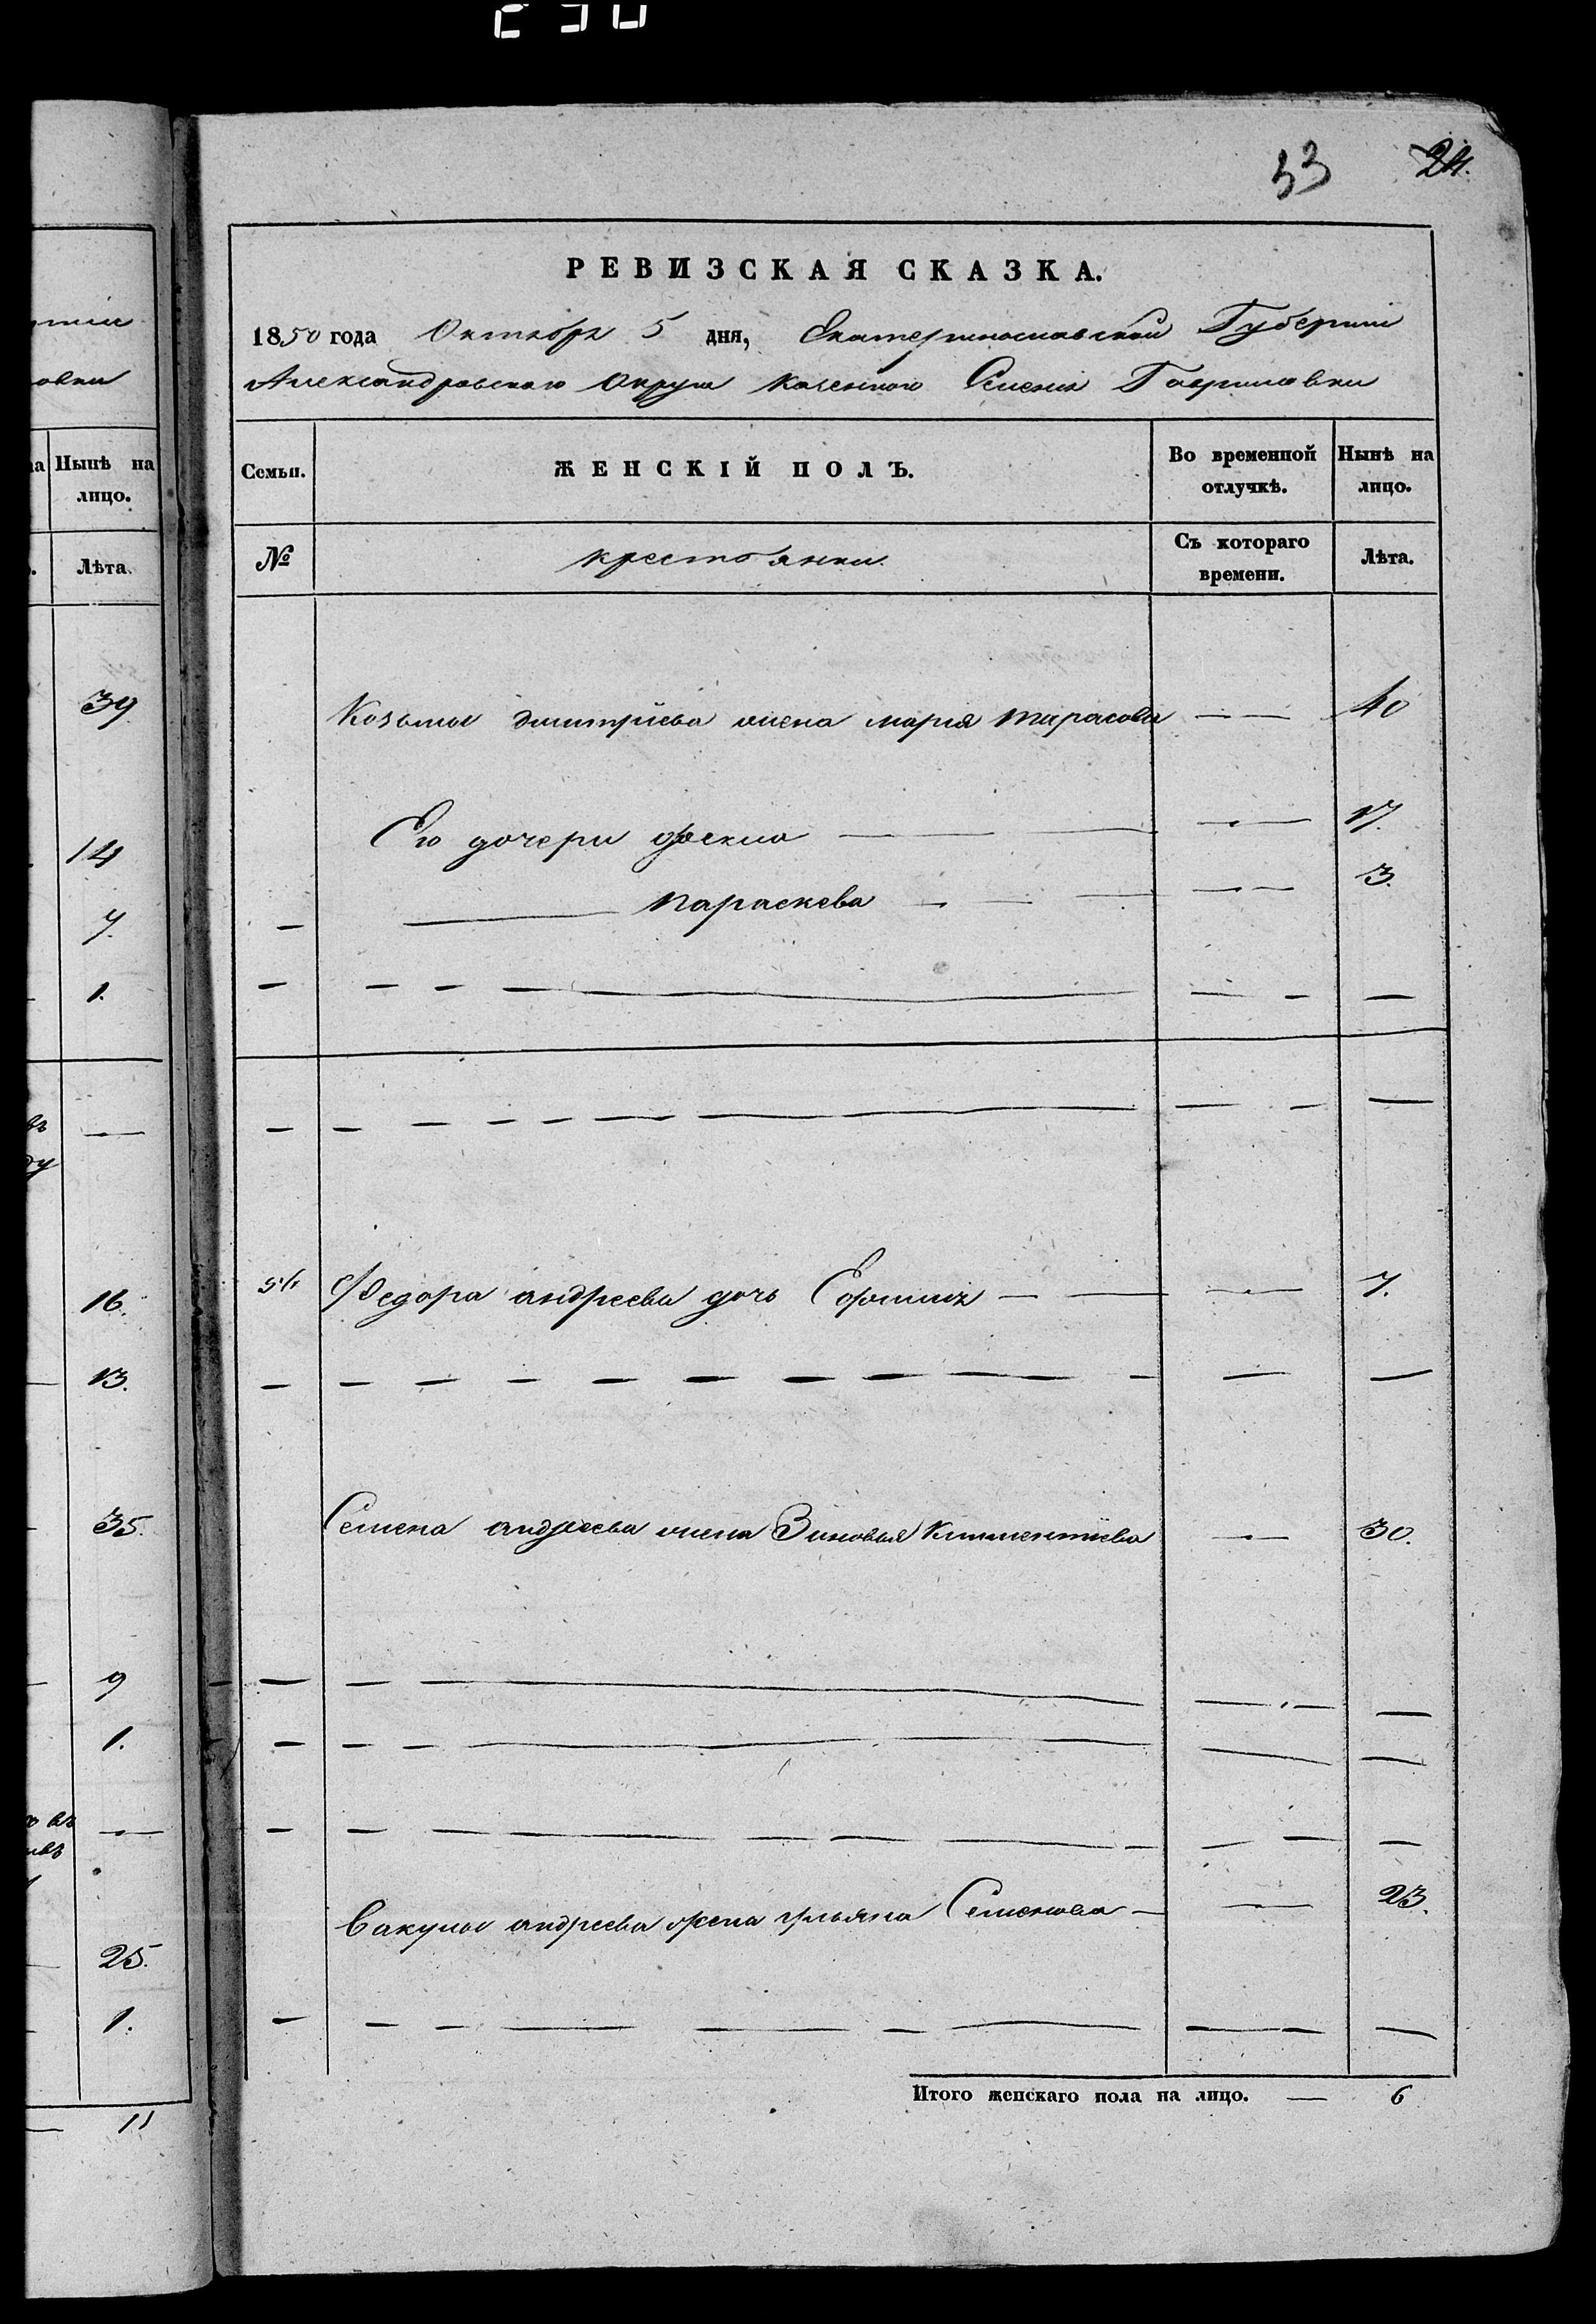 33 24.
тніи
овки
РЕВИЗСКАЯ СКАЗКА.
1850 года Октября 5 дня, Екатеринославской Губерніи
Александровскаго Округа Казеннаго Селенія Гавриловки
на Нынѣ на лицо.
Лѣта.
39
14
7.
1.
16.
13.
35.
9
1.
25.
1.
11
Семьи. ЖЕНСКІЙ ПОЛЪ. Во временной отлучкѣ. Нынѣ на лицо.
№ крестьянки. Съ котораго времени. Лѣта.
Козьмы Дмитріева жена марія тарасова — — 40
Его дочери — — — 17.
— параскева — — — — 3.
56 Федора андреева дочь Ефимія — — — 7.
Семена андреева жена Зиновья Климентіева — 30.
Вакулы андреева жена ульяна Семенова — — 23.
Итого женскаго пола на лицо. — 6